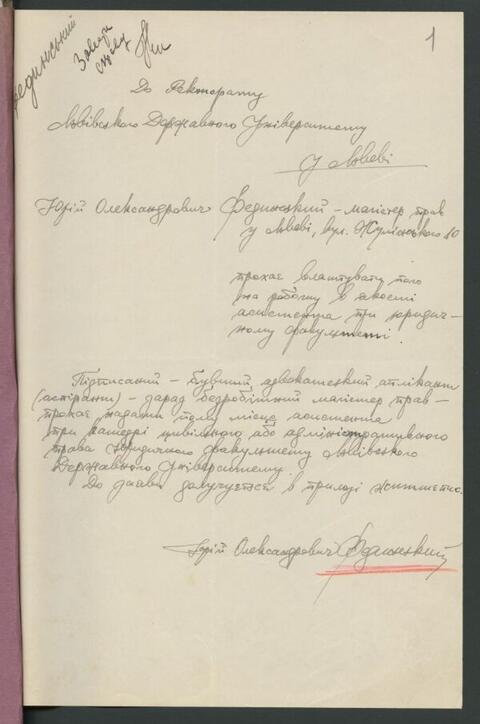 1
До Ректорату
Львівского Державного Університету
у Львові
Юрій Олександрович Фединський – магістер прав
у Львові, вул.
прохає влаштувати його
на роботу в якости
асистента при юридич-
ному факультеті.
Підписаний – бувший адвокатський аплікант
(аспірант) – зараз безробітний магістер прав –
прохає надати йому місце асистента
при катедрі цивільного або адміністрацийного
права Юридичного факультету Львівского
Державного Університету.
До заяви долучується в прилозі життєпис.
Юрій Олександрович Фединський